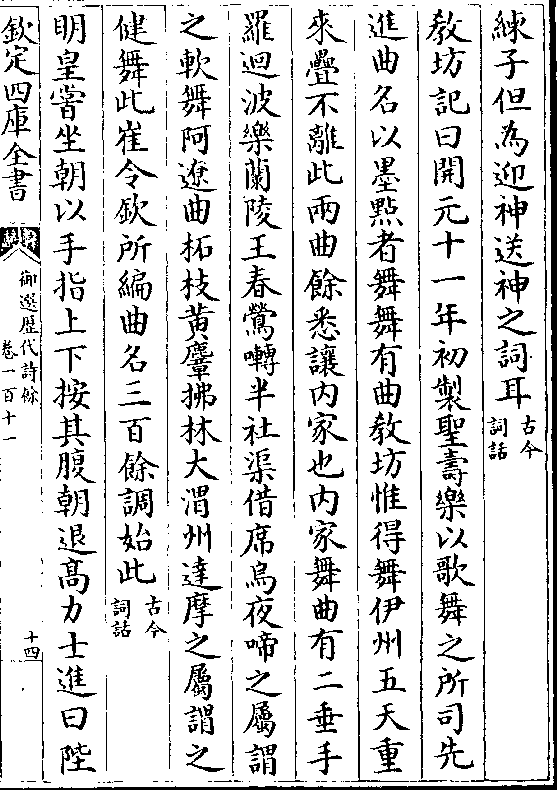 練子但為迎神送神之詞耳古今
詞話
教坊記曰開元十一年初製聖壽樂以歌舞之所司先
進曲名以墨㸃者舞舞有曲教坊惟得舞伊州五天重
來疊不離此兩曲餘悉讓内家也内家舞曲有二垂手
羅迴波樂蘭陵王春鶯囀半社渠借席烏夜啼之屬謂
之軟舞阿遼曲柘枝黃麞拂林大渭州達摩之屬謂之
健舞此崔令欽所編曲名三百餘調始此古今
詞話
明皇嘗坐朝以手指上下按其腹朝退髙力士進曰陛
欽定四庫全書
御選歷代詩餘
卷一百十一
十四